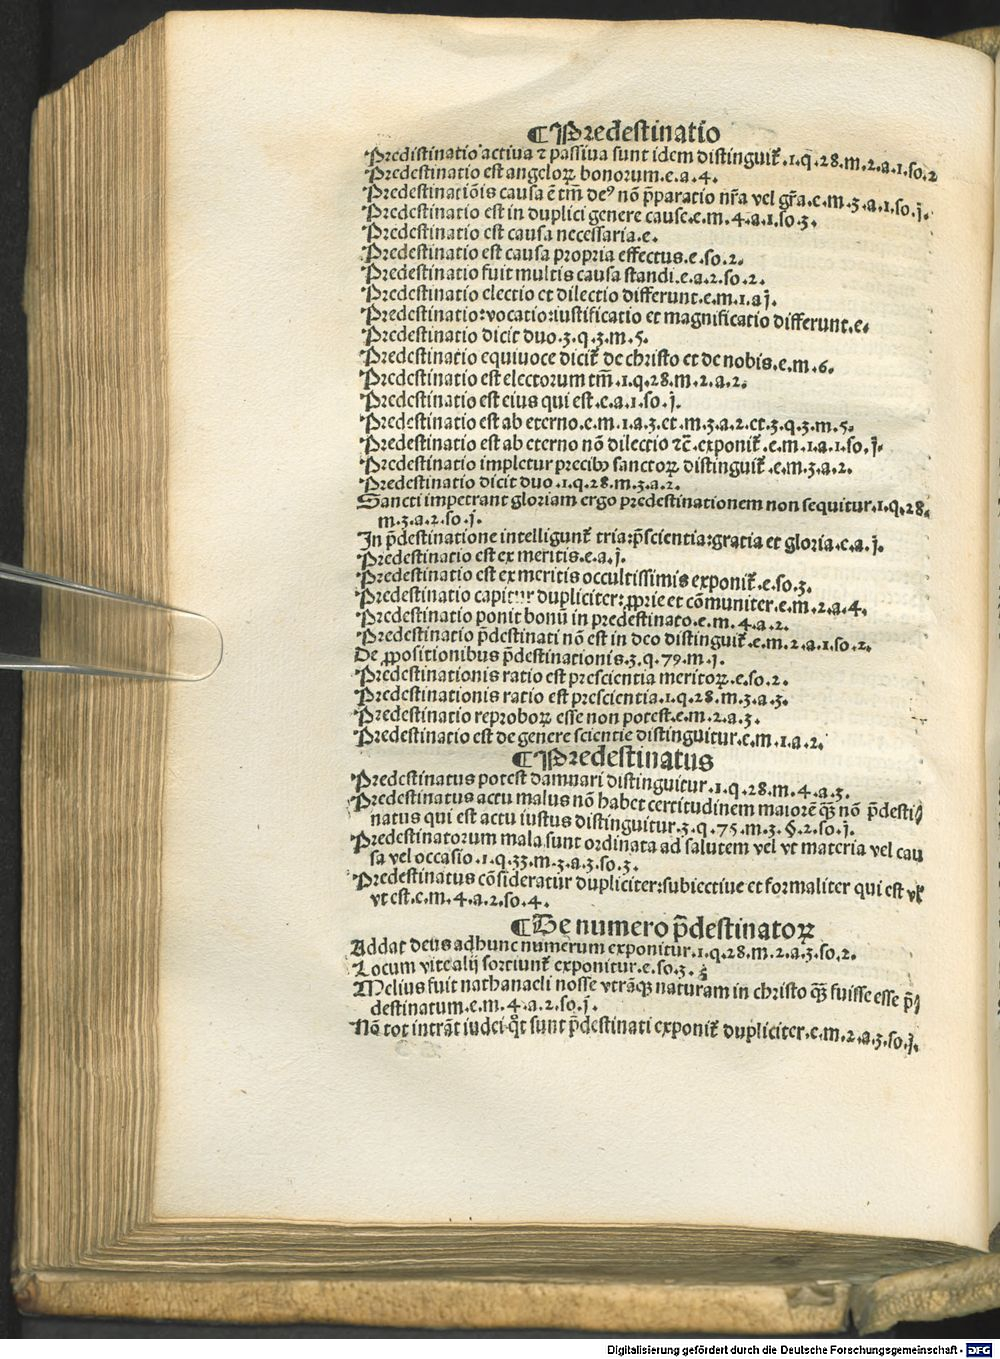 ¶Predestinatio
Predistinatio activa ⁊ passiva sunt idem distinguit̃.1.q̃.28.m.2.a.1.so.2
Predestinatio est angeloꝝ bonorum.e.a.4.
Predestinatiõis causa ẽ tm̃ deꝰ nõ p̃paratio nr̃a vel gr̃a.e.m.3.a.1.so.j.
Predestinatio est in duplici genere cause.e.m.4.a.1.so.3.
Predestinatio est causa necessaria.e.
Predestinatio est causa propria effectus.e.so.2.
Predestinatio fuit multis causa standi.e.a.2.so.2.
Predestinatio electio et dilectio differunt.e.m.1.a j.
Predestinatio:vocatio:iustificatio et magnificatio differunt.e.
Predestinatio dicit duo.3.q.3.m.5.
Predestinatio equiuoce dicit̃ de christo et de nobis.e.m.6.
Predestinatio est electorum tm̃.1.q.28.m.2.a.2.
Predestinatio est eius qui est.e.a.1.so.j.
Predestinatio est ab eterno.e.m.1.a.3.et.m.3.a.2.et.3.q.3.m.5.
Predestinatio est ab eterno nõ dilectio ⁊c̃.exponit̃.e.m.1.a.1.so.j.
Predestinatio impletur precibꝰ sanctoꝝ distinguit̃.e.m.3.a.2.
Predestinatio dicit duo.1.q.28.m.3.a.2.
Sancti impetrant gloriam ergo predestinationem non sequitur.1.q.28.
m.3.a.2.so.j.
In p̃destinatione intelligunt̃ tria:p̃scientia:gratia et gloria.e.a.j.
Predestinatio est ex meritis.e.a.j.
Predestinatio est ex meritis occultissimis exponit̃.e.so.3.
Predestinatio capitur dupliciter:ꝓprie et cõmuniter.e.m.2.a.4.
Predestinatio ponit bonũ in predestinato.e.m.4.a.2.
Predestinatio p̃destinati nõ est in deo distinguit̃.e.m.2.a.1.so.2.
De ꝓpositionibus p̃destinationis.3.q.79.m.j.
Predestinationis ratio est prescientia meritoꝝ.e.so.2.
Predestinationis ratio est prescientia.1.q.28.m.3.a.3.
Predestinatio reproboꝝ esse non potest.e.m.2.a.3.
Predestinatio est de genere scientie distinguitur.e.m.1.a.2.
¶Predestinatus
Predestinatus potest damnari distinguitur.1.q.28.m.4.a.3.
Predestinatus actu malus nõ habet certitudinem maiorẽ qꝫ̃ nõ p̃desti⸗
natus qui est actu iustus distinguitur.3.q.75.m.3.§.2.so.j.
Predestinatorum mala sunt ordinata ad salutem vel vt materia vel cau
sa vel occasio.1.q.33.m.3.a.3.so.3.
Predestinatus cõsideratur dupliciter:subiectiue et formaliter qui est vł
vt est.e.m.4.a.2.so.4.
¶De numero p̃destinatoꝝ
Addat deus adhunc numerum exponitur.1.q.28.m.2.a.3.so.2.
Locum vite alij sortiunt̃ exponitur.e.so.3.
Melius fuit nathanaeli nosse vtrãqꝫ naturam in christo qꝫ̃ fuisse esse p̃⸗
destinatum.e.m.4.a.2.so.j.
Nõ tot intrãt iudei qͦt sunt p̃destinati exponit̃ dupliciter.e.m.2.a.3.so.j.
Digitalisierung gefördert durch die Deutsche Forschungsgemeinschaft - DFG